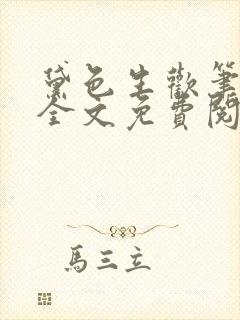 黛色生歡筆
全文免費閱
馬三立